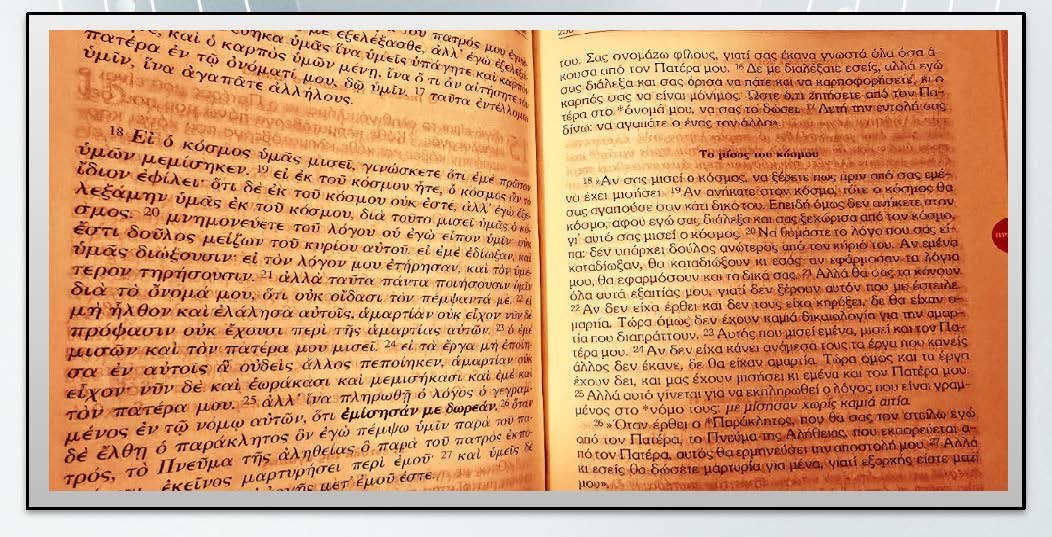 με ἐξελέξασθε, ἀλλ' ἐγὼ ἐξελεξά
ὑμᾶς ἵνα ὑμεῖς ὑπάγητε καὶ καρπὸν
καὶ ὁ καρπὸς ὑμῶν μένῃ, ἵνα ὅ τι ἂν αἰτήσητε τὸν
πατέρα ἐν τῷ ὀνόματί μου, δῷ ὑμῖν. 17 ταῦτα ἐντέλλομαι
ὑμῖν, ἵνα ἀγαπᾶτε ἀλλήλους.
18 Εἰ ὁ κόσμος ὑμᾶς μισεῖ, γινώσκετε ὅτι ἐμὲ πρῶτον
ὑμῶν μεμίσηκεν. 19 εἰ ἐκ τοῦ κόσμου ἦτε, ὁ κόσμος ἂν τὸ
ἴδιον ἐφίλει· ὅτι δὲ ἐκ τοῦ κόσμου οὐκ ἐστέ, ἀλλ' ἐγὼ ἐξε-
λεξάμην ὑμᾶς ἐκ τοῦ κόσμου, διὰ τοῦτο μισεῖ ὑμᾶς ὁ κό-
σμος. 20 μνημονεύετε τοῦ λόγου οὗ ἐγὼ εἶπον ὑμῖν· οὐκ
ἔστι δοῦλος μείζων τοῦ κυρίου αὐτοῦ. εἰ ἐμὲ ἐδίωξαν, καὶ
ὑμᾶς διώξουσιν· εἰ τὸν λόγον μου ἐτήρησαν, καὶ τὸν ὑμέ-
τερον τηρήσουσιν. 21 ἀλλὰ ταῦτα πάντα ποιήσουσιν ὑμῖν
διὰ τὸ ὄνομά μου, ὅτι οὐκ οἴδασι τὸν πέμψαντά με. 22 εἰ
μὴ ἦλθον καὶ ἐλάλησα αὐτοῖς, ἁμαρτίαν οὐκ εἶχον· νῦν δὲ
πρόφασιν οὐκ ἔχουσι περὶ τῆς ἁμαρτίας αὐτῶν. 23 ὁ ἐμὲ
μισῶν καὶ τὸν πατέρα μου μισεῖ. 24 εἰ τὰ ἔργα μὴ ἐποίη-
σα ἐν αὐτοῖς ἃ οὐδεὶς ἄλλος πεποίηκεν, ἁμαρτίαν οὐκ
εἶχον· νῦν δὲ καὶ ἑωράκασι καὶ μεμισήκασι καὶ ἐμὲ καὶ
τὸν πατέρα μου. 25 ἀλλ' ἵνα πληρωθῇ ὁ λόγος ὁ γεγραμ-
μένος ἐν τῷ νόμῳ αὐτῶν, ὅτι ἐμίσησάν με δωρεάν. 26 ὅταν
δὲ ἔλθῃ ὁ παράκλητος ὃν ἐγὼ πέμψω ὑμῖν παρὰ τοῦ πα-
τρός, τὸ Πνεῦμα τῆς ἀληθείας ὃ παρὰ τοῦ πατρὸς ἐκπο-
ἐκεῖνος μαρτυρήσει περὶ ἐμοῦ· 27 καὶ ὑμεῖς δὲ
μετ' ἐμοῦ ἐστε.
του. Σας ονομάζω φίλους, γιατί σας έκανα γνωστά όλα όσα ά-
κουσα από τον Πατέρα μου. 16 Δε με διαλέξατε εσείς, αλλά εγώ
σας διάλεξα και σας όρισα να πάτε και να καρποφορήσετε, κι ο
καρπός σας να είναι μόνιμος. Ώστε ό,τι ζητήσετε από τον Πα-
τέρα στο *όνομά μου, να σας το δώσει. 17 Αυτή την εντολή σας
δίνω: να αγαπάτε ο ένας τον άλλο».
Το μίσος του κόσμου
18 »Αν σας μισεί ο κόσμος, να ξέρετε πως πριν από σας εμέ-
να έχει μισήσει. 19 Αν ανήκατε στον κόσμο, τότε ο κόσμος θα
σας αγαπούσε σαν κάτι δικό του. Επειδή όμως δεν ανήκετε στον
κόσμο, αφού εγώ σας διάλεξα και σας ξεχώρισα από τον κόσμο,
γι' αυτό σας μισεί ο κόσμος. 20 Να θυμάστε το λόγο που σάς εί-
πα: δεν υπάρχει δούλος ανώτερος από τον κύριό του. Αν εμένα
καταδίωξαν, θα καταδιώξουν κι εσάς· αν εφάρμοσαν τα λόγια
μου, θα εφαρμόσουν και τα δικά σας. 21 Αλλά θα σας τα κάνουν
όλα αυτά εξαιτίας μου, γιατί δεν ξέρουν αυτόν που με έστειλε.
22 Αν δεν είχα έρθει και δεν τους είχα κηρύξει, δε θα είχαν α-
μαρτία. Τώρα όμως δεν έχουν καμιά δικαιολογία για την αμαρ-
τία που διαπράττουν. 23 Αυτός που μισεί εμένα, μισεί και τον Πα-
τέρα μου. 24 Αν δεν είχα κάνει ανάμεσά τους τα έργα που κανείς
άλλος δεν έκανε, δε θα είχαν αμαρτία. Τώρα όμως και τα έργα
έχουν δει, και μας έχουν μισήσει κι εμένα και τον Πατέρα μου.
25 Αλλά αυτό γίνεται για να εκπληρωθεί ο λόγος που είναι γραμ-
μένος στο *νόμο τους: με μίσησαν χωρίς καμιά αιτία.
26 »Όταν έρθει ο *Παράκλητος, που θα σας τον στείλω εγώ
από τον Πατέρα, το Πνεύμα της Αλήθειας, που εκπορεύεται α-
πό τον Πατέρα, αυτός θα ερμηνεύσει την αποστολή μου. 27 Αλλά
κι εσείς θα δώσετε μαρτυρία για μένα, γιατί εξαρχής είστε μαζί
μου».